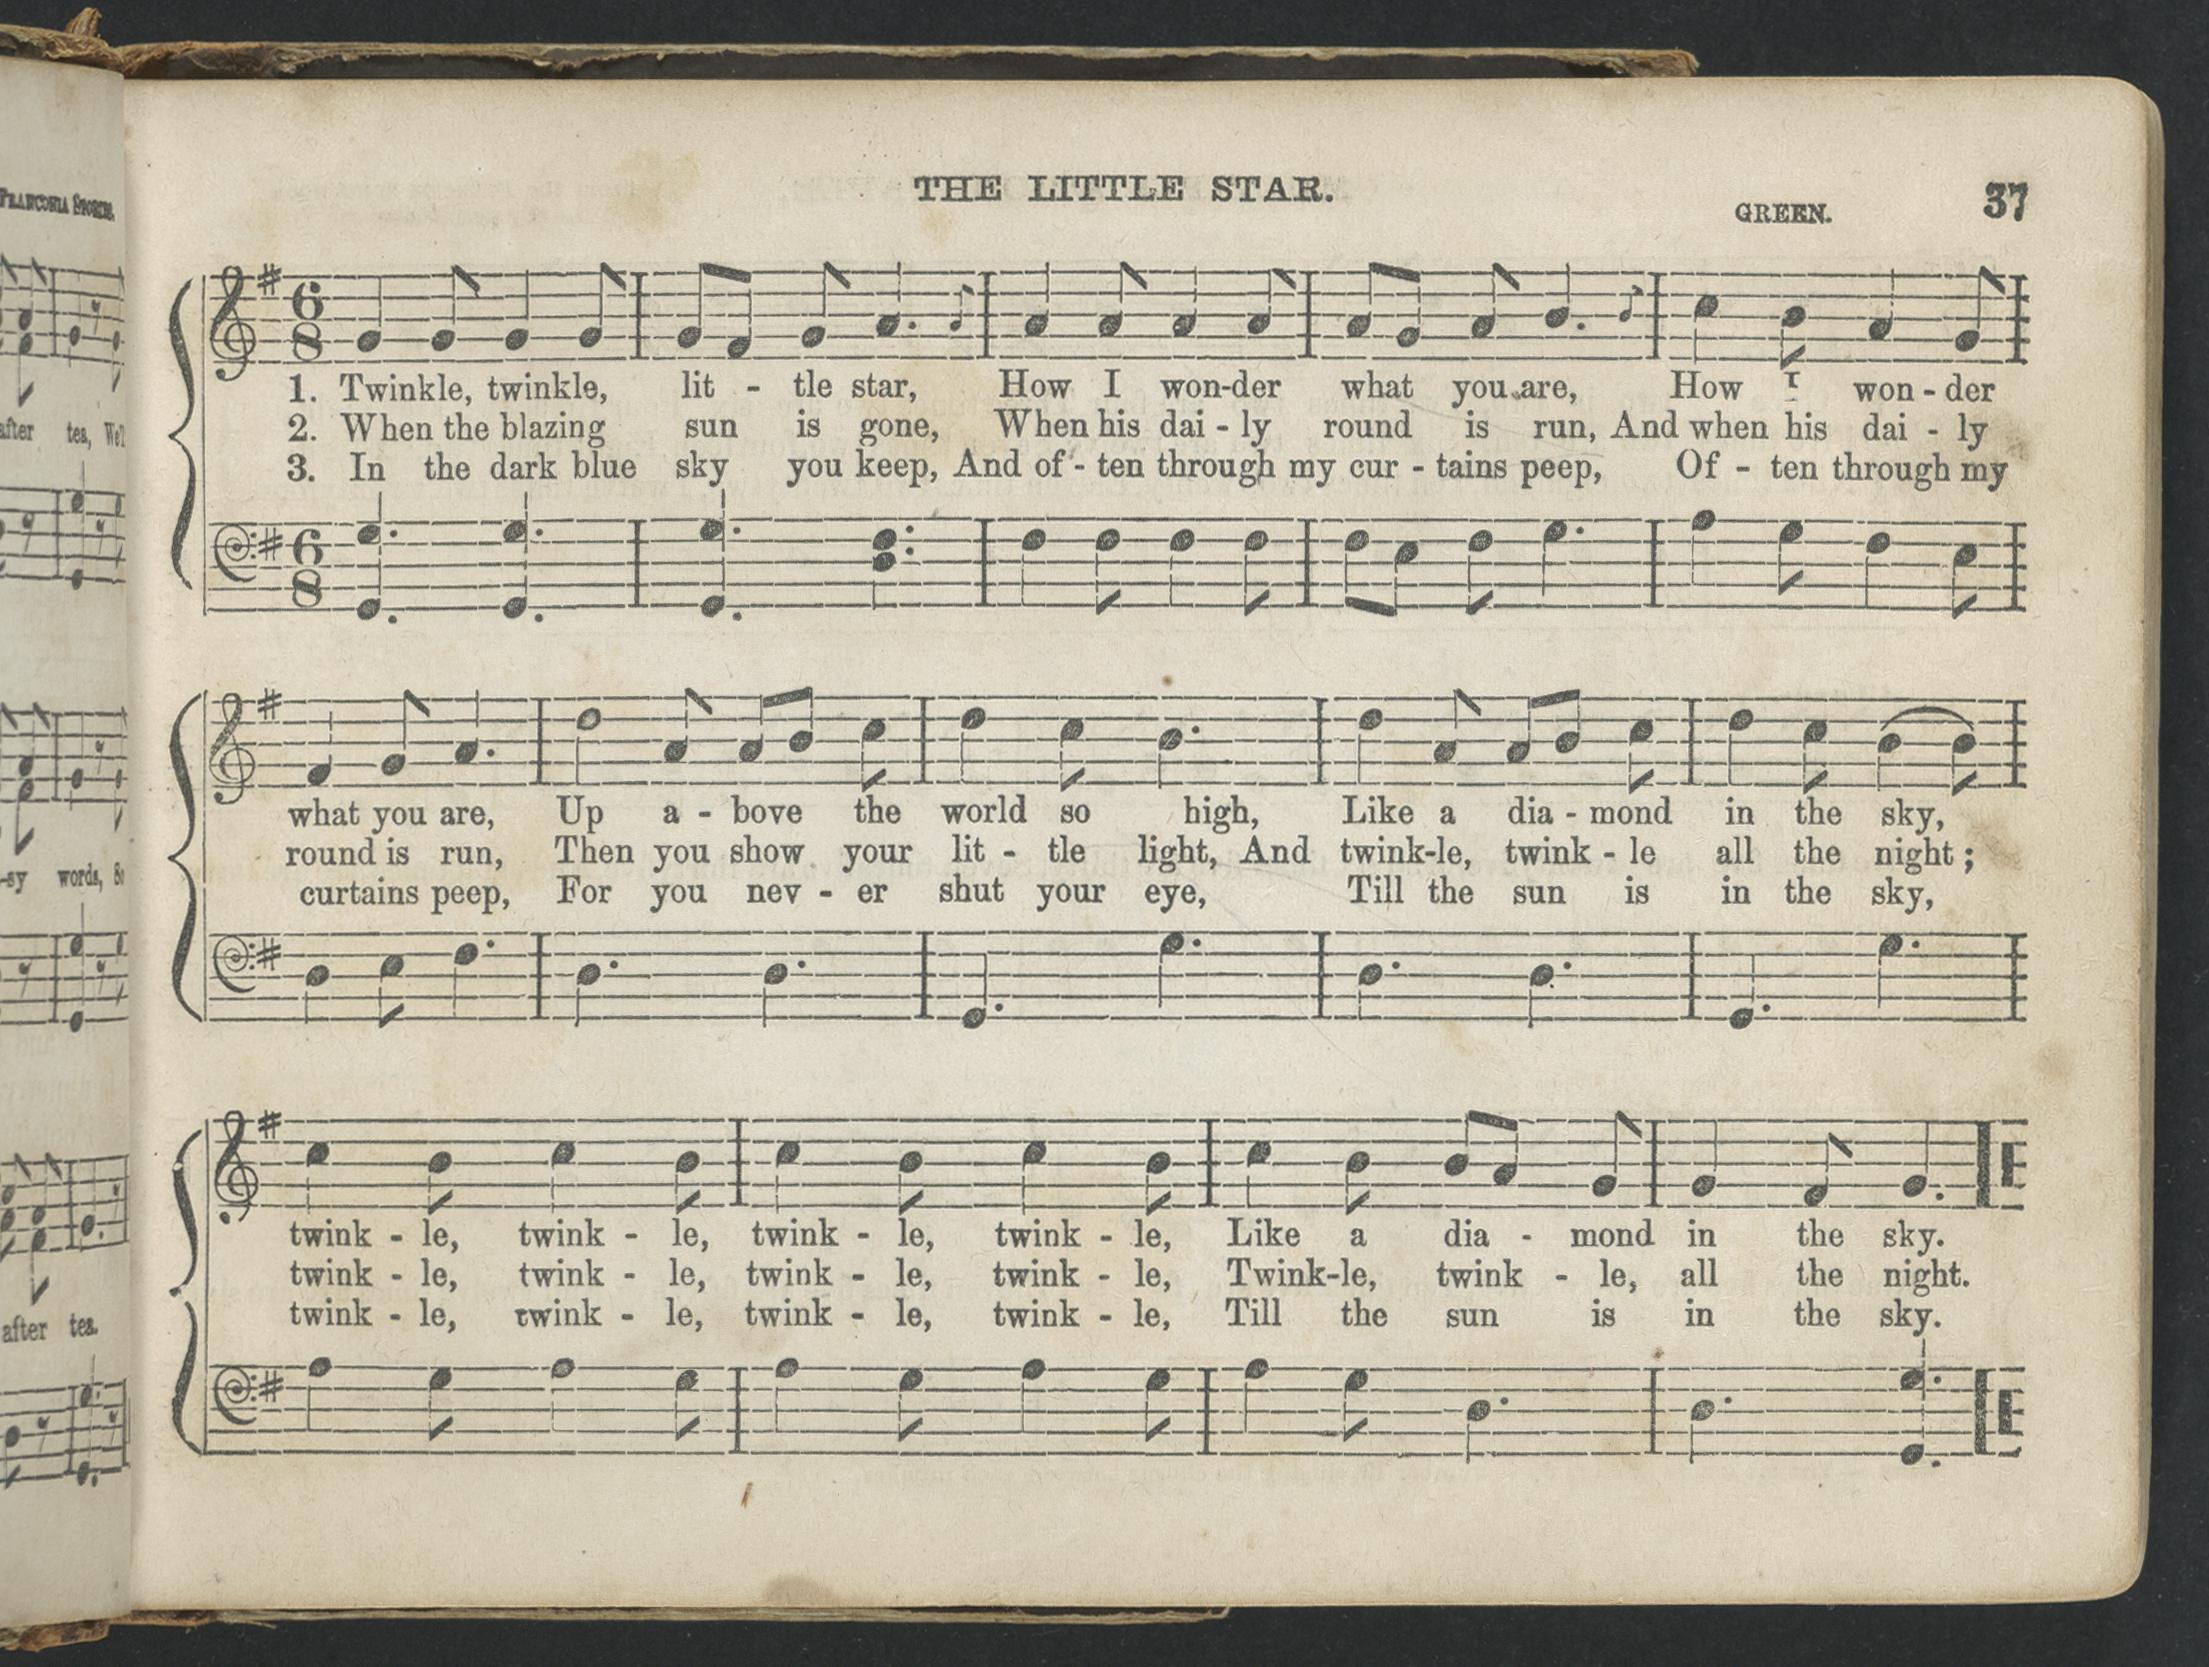 THE LITTLE STAR.
GREEN.
37
FRANCONIA STORIES.
6
8
1. Twinkle, twinkle, lit - tle star, How I won-der what you are, How I won - der
2. When the blazing sun is gone, When his dai - ly round is run, And when his dai - ly
3. In the dark blue sky you keep, And of - ten through my cur - tains peep, Of - ten through my
6
8
after tea, We'll
what you are, Up a - bove the world so high, Like a dia - mond in the sky,
round is run, Then you show your lit - tle light, And twink-le, twink - le all the night ;
curtains peep, For you nev - er shut your eye, Till the sun is in the sky,
-sy words, So
twink - le, twink - le, twink - le, twink - le, Like a dia - mond in the sky.
twink - le, twink - le, twink - le, twink - le, Twink-le, twink - le, all the night.
twink - le, twink - le, twink - le, twink - le, Till the sun is in the sky.
after tea.